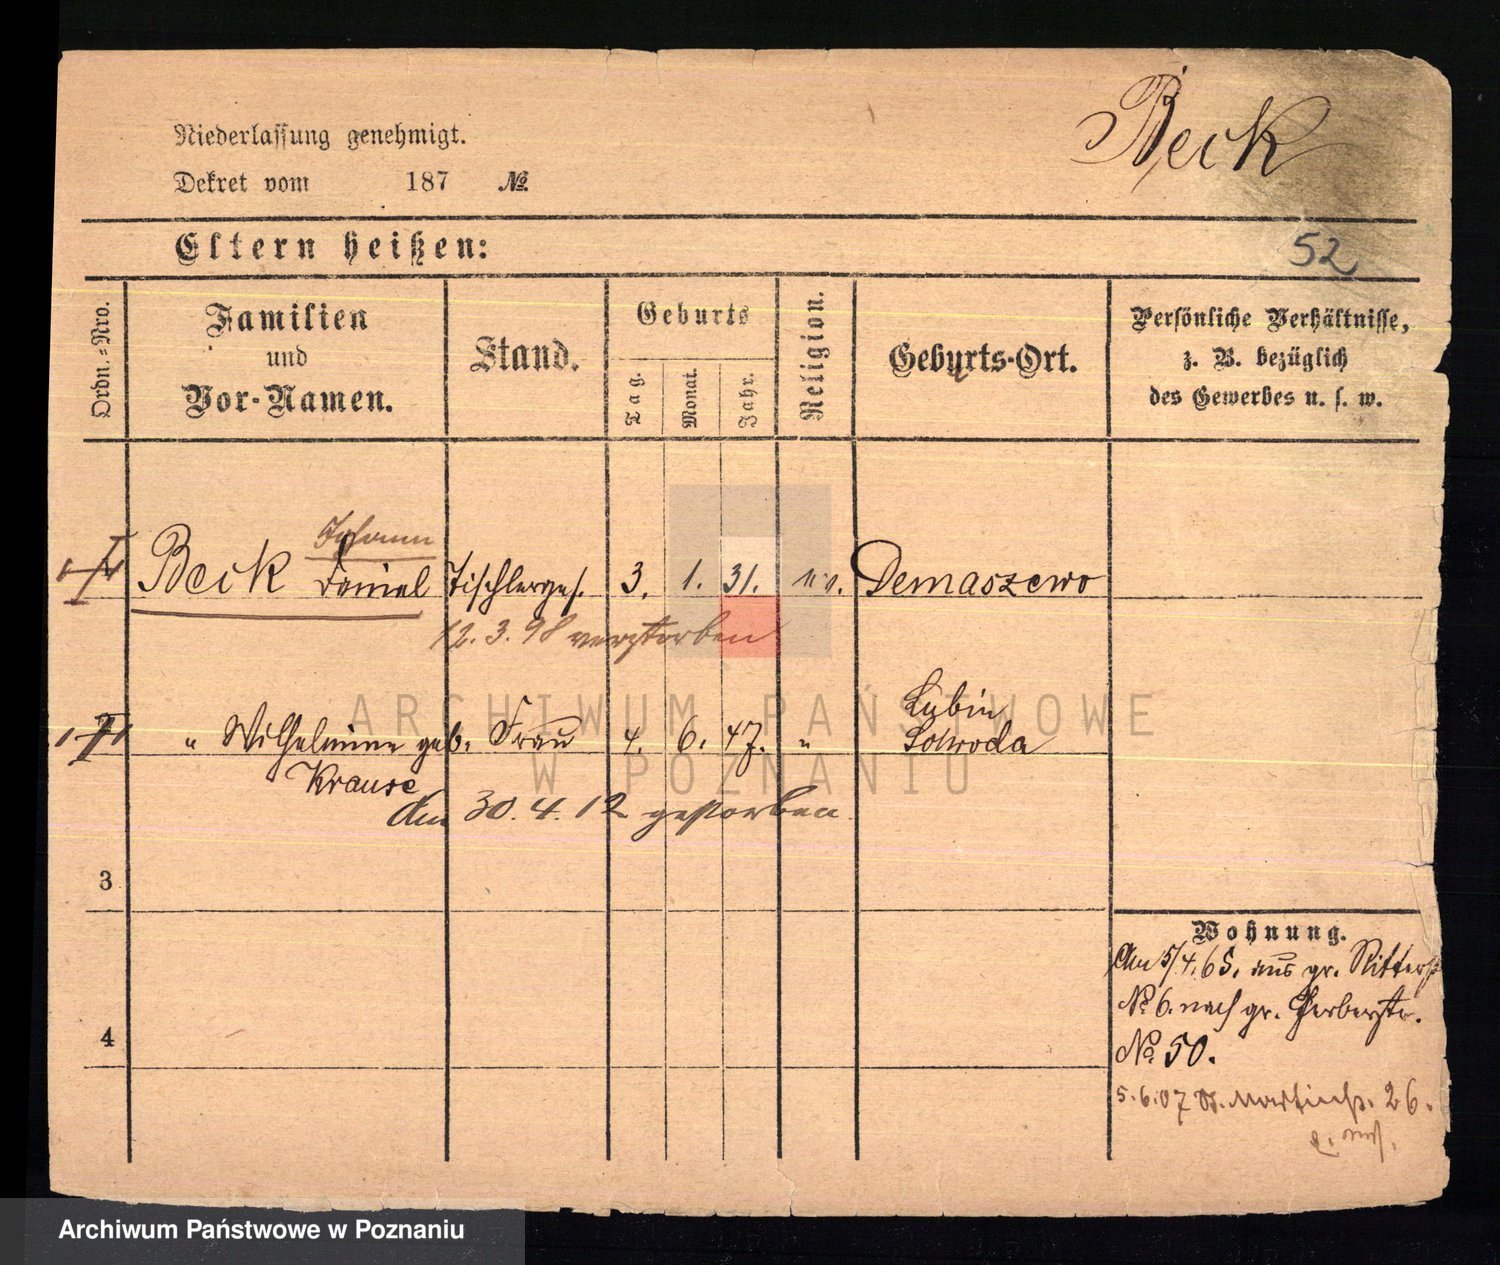 Beck
Niederlassung genehmigt.
Dekret vom 187 №
Eltern heißen:
52
Ordn.-Nro.
Familien und Vor-Namen.
Stand.
Geburts
Tag.
Monat.
Jahr.
Religion.
Geburts-Ort.
Persönliche Verhältnisse,
z. B. bezüglich
des Gewerbes u. s. w.
Johann
Beck Daniel Tischlerges. 3. 1. 31. ev. Demaszewo
12. 3. 98 verstorben
Lubin
" Wilhelmine geb. Frau 4. 6. 47. " Schroda
Krause
am 30. 4. 12 gestorben
3
4
Wohnung.
Am 5/4.65. aus gr. Ritterst
№ 6. nach gr. Gerberstr.
№ 50.
5.6.07 St. Martinstr. 26.
ARCHIWUM PAŃSTWOWE
W POZNANIU
Archiwum Państwowe w Poznaniu